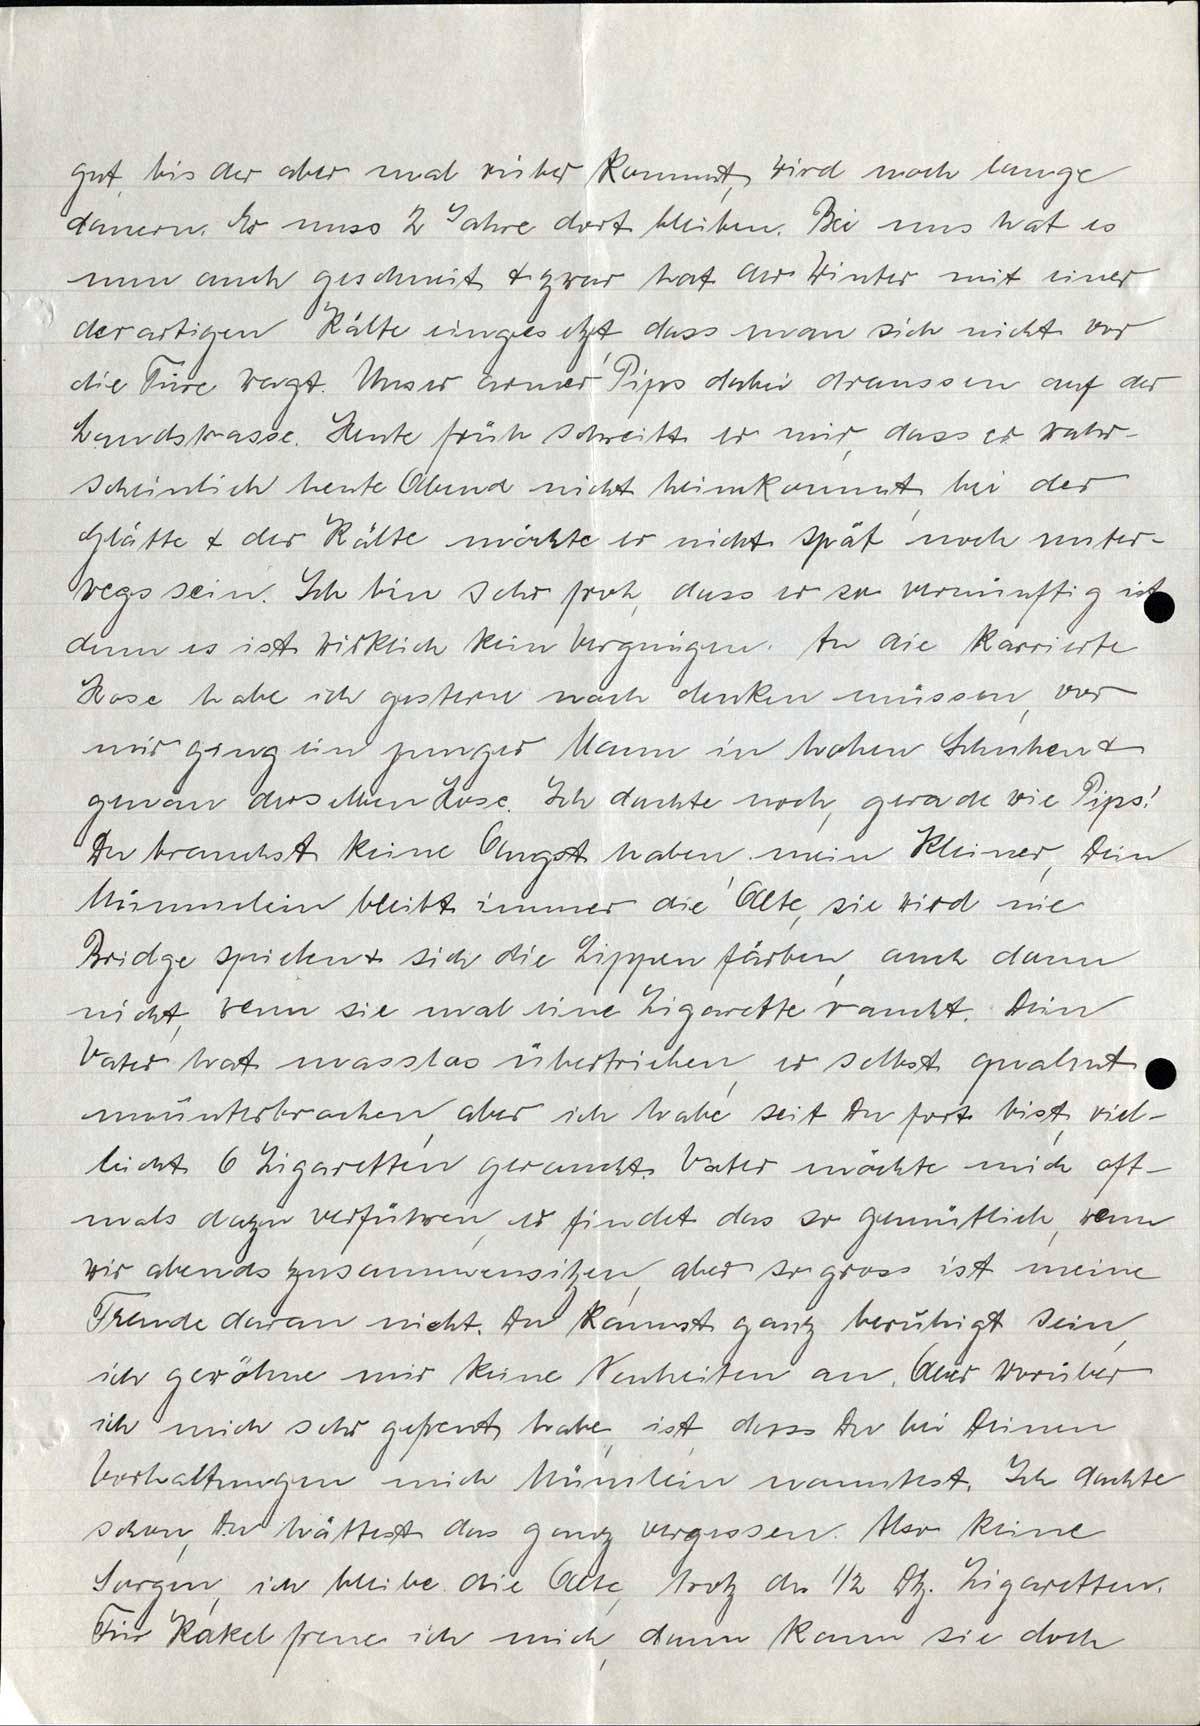 gut, bis der aber mal rüber kommt, wird noch lange
dauern. Er muss 2 Jahre dort bleiben. Bei uns hat es
nun auch geschneit & zwar hat der Winter mit einer
derartigen Kälte eingesetzt, dass man sich nicht vor
die Türe wagt. Unser armer Pips dabei draussen auf der
Landstrasse. Heute früh schreibt er mir, dass er wahr-
scheinlich heute Abend nicht heimkommt, bei der
Glätte & der Kälte möchte er nicht spät noch unter-
wegs sein. Ich bin sehr froh, dass er so vernünftig ist
denn es ist wirklich kein Vergnügen. An die karrierte
Hose habe ich gestern noch denken müssen, vor
mir ging ein junger Mann in hohen Schuhen &
genau derselben Hose. Ich dachte noch, gerade wie Pips!
Du brauchst keine Angst haben, mein Kleiner, Dein
Mümmlein bleibt immer die Alte, sie wird nie
Bridge spielen & sich die Lippen färben, auch dann
nicht, wenn sie mal eine Zigarette raucht. Dein
Vater hat masslos übertrieben, er selbst qualmt
ununterbrochen, aber ich habe seit Du fort bist, viel-
leicht 6 Zigaretten geraucht. Vater möchte mich oft-
mals dazu verführen, er findet das so gemütlich, wenn
wir abends zusammensitzen, aber so gross ist meine
Freude daran nicht. Du kannst ganz beruhigt sein,
ich gewöhne mir keine Neuheiten an. Aber worüber
ich mich sehr gefreut habe, ist, dass Du bei Deinen
Vorhaltungen mich Mümlein nanntest. Ich dachte
schon, Du hättest das ganz vergessen. Also keine
Sorgen, ich bleibe die Alte, trotz der 1/2 Dtz. Zigaretten.
Für Käkel freue ich mich, dann kann sie doch